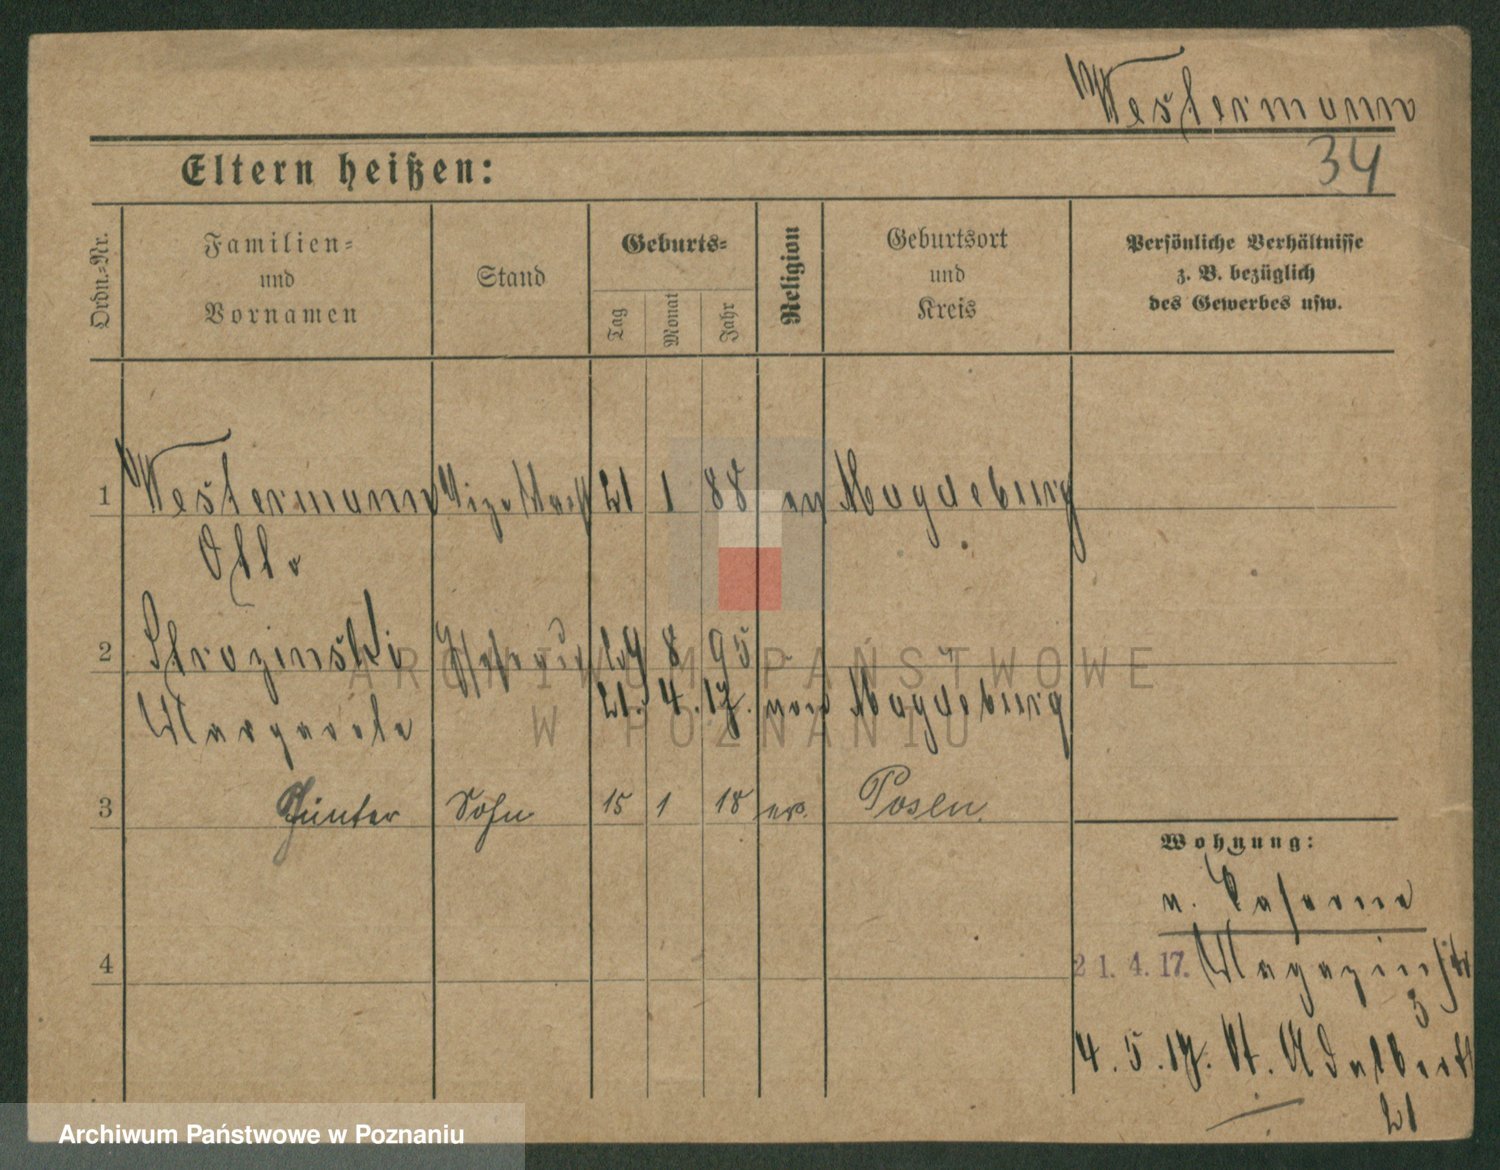 Westermann
34
Eltern heißen:
Ordn.-Nr.
Familien-
und
Vornamen
Stand
Geburts-
Tag
Monat
Jahr
Religion
Geburtsort
und
Kreis
Persönliche Verhältnisse
z. B. bezüglich
des Gewerbes usw.
1 Westermann 21 1 88 ev Magdeburg
Otto
2 Strozinski 8 95
Margarete 21. 4. 17. von Magdeburg
3 Günter Sohn 15 1 18 ev. Posen
4
Wohnung:
n. Caserne
21. 4. 17. Magazinstr
3
4. 5. 17. St. Adalbert
21
ARCHIWUM PAŃSTWOWE
W POZNANIU
Archiwum Państwowe w Poznaniu